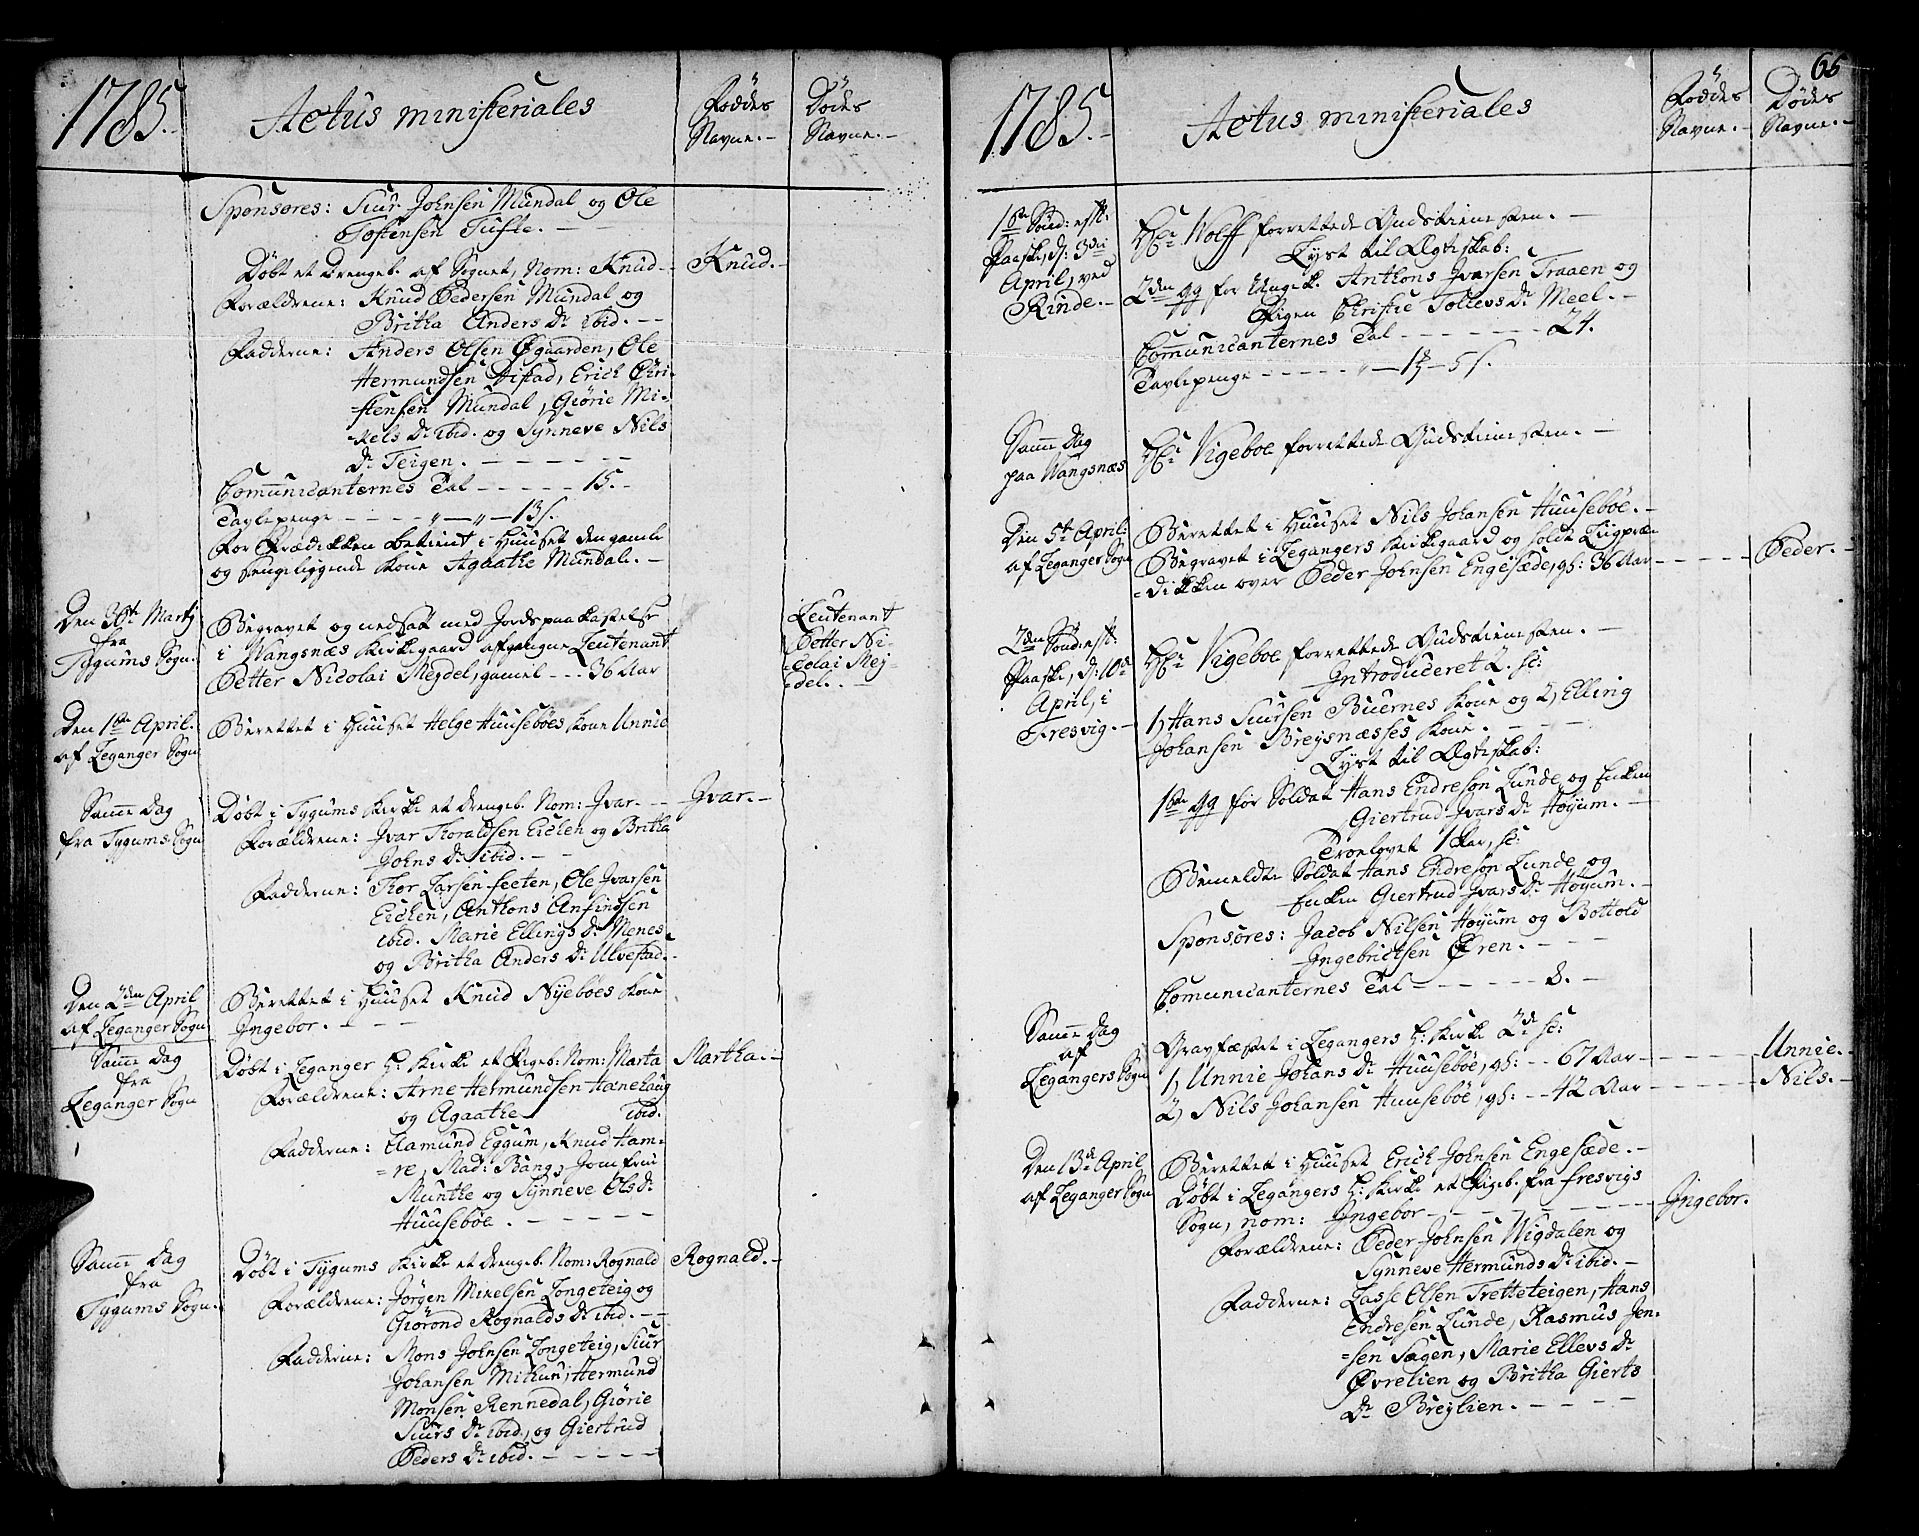 1785.
Actus ministeriales
Føddes Navne.-
Dødes Navne.-
Sponsores: Siur Johnsen Mundal og Ole
Tostensen Tufte. - -
Døbt et Drengeb. af Sognet, Nom: Knud- Knud.-
Forældrene: Knud Pedersen Mundal og
Britha Anders Dr ibid. - -
Fadderne: Anders Olsen Øgaarden, Ole
Hermundsen Histad, Erich Chri-
stensen Mundal, Giørie Mi-
-kels Dr ibid. og Synneve Nils
Dr Teigen. - - - - -
Com̅unicanternes Tal - - - - - 15.-
Tavlepenge - - - - „ — „ — 13 s.
For Prædikken betient i Huuset den gamle
og sengeliggende Kone Agaathe Mundal. -
Den 30te Martj
fra
Tygums Sogn.
Begravet og nedsatt med Jordspaakastelse
i Nangsnæs Kirkegaard afgangne Leutenant
Petter Nicolai Mejdel, gamel - - - 36 Aar
Leutenant
Petter Ni-
-colai Mej-
-del. -
Den 1ste April.
af Leganger Sogn
Berettet i Huuset Helge Huusebøes Kone Unnie
Sam̅e Dag
fra Tygums Sogn
Døbt i Tygums Kirke et Drengeb. Nom: Jvar. - - Jvar.-
Forældrene: Jvar Thoraldsen Eichen og Britha
Johns Dr ibid. - -
Fadderne: Thor Larsen Feeten, Ole Jvarsen
Eichen, Anthons Anfindsen
ibid. Marie Ellings Dr Menes
og Britha Anders Dr Ulvestad.-
Den 2den April
af Leganger Sogn
Berettet i Huuset Knud Nyebøes Kone
Ingebor. - - -
Sam̅e Dag
fra
Leganger Sogn
Døbt i Leganger H: Kirke et Pigeb: Nom: Marta Martha.-
Forældrene: Arne Hermundsen Hanehaug
og Agaathe ibid.
Fadderne: Aamund Eggum, Knud Ham-
=re, Mad: Bang, Jomfrue
Munthe og Synneve Ols Dr
Huusebøe. - - - - -
Sam̅e Dag
fra
Tygums Sogn.
Døbt i Tygums Kirke et Drengeb. Nom: Rognald Rognald.-
Forældrene: Jørgen Mikelsen Longeteig og
Giørond Rognalds Dr ibid. - -
Fadderne: Mons Johnsen Longeteig, Siur
Johansen Mithun, Hermund
Monsen Rennedal, Giørie
Siurs Dr ibid., og Giertrud
Peders Dr ibid. - - - - -
65
1785.-
Actus ministeriales
Føddes Navne.-
Dødes Navne.-
1ste Sønd: eft:
Paaske, d: 3die
April, ved
Rinde. -
Hr Wolff forrettede Gudstienesten. -
Lyst til Ægteskab:
2den gg for Ungek. Anthons Jvarsen Traaen og
Pigen Christie Tollevs Dr Meel. -
Com̅unicanternes Tal - - - - - - 24.
Tavlepenge - - - - - „ — 1 — 5 s.
Sam̅e Dag
paa Nangsnæs
Hr Vigeboe forrettede Gudstienesten. -
Den 5te April:
af Leganger Sogn
Berettet i Huuset Nils Johansen Huusebøe. -
Begravet i Legangers Kirkegaard og holdt Liigpræ-
=dikken over Peder Johnsen Engesæde, gl: 36 Aar - - - - Peder. -
2den Sønd: eft:
Paaske, d: 10de
April, i
Fresvig. -
Hr Vigeboe forrettede Gudstienesten. -
Introduceret 2. sc:
1, Hans Siursen Buernes Kone og 2, Elling
Johansen Breysnæsses Kone. - - - -
Lyst til Ægteskab:
1ste gg for Soldat Hans Endresøn Lunde og Enken
Giertrud Jvars Dr Høyum. -
Troelovet 1 Par, sc:
Bemeldte Soldat Hans Endresøn Lunde og
Enken Giertrud Jvars Dr Høyum. -
Sponsores: Jacob Nilsen Høyum og Bottold
Ingebrictsen Øren. - - -
Com̅unicanternes Tal - - - - - - 8. -
Sam̅e Dag
af
Legangers Sogn
Gravfæstet i Legangers H: Kirke 2de sc:
1, Unnie Johans Dr Huusebøe, gl: - - 67 Aar - - - - Unnie.-
2, Nils Johansen Huusebøe, gl: - - 42 Aar - - - - Nils.-
Den 13de April
af Leganger Sogn
Berettet i Huuset Erich Johnsen Engesæde. -
Døbt i Legangers H: Kirke et Pigeb. fra Fresvigs
Sogn, nom: Ingebor - - - - - - - Ingebor.
Forældrene: Peder Johnsen Nigdalen og
Synneve Hermunds Dr ibid. -
Fadderne: Lasse Olsen Tretteteigen, Hans
Endresen Lunde, Rasmus Jen-
=sen Sagen, Marie Ellevs Dr
Øvrelien og Britha Gierts
Dr Breylien. - - - - -